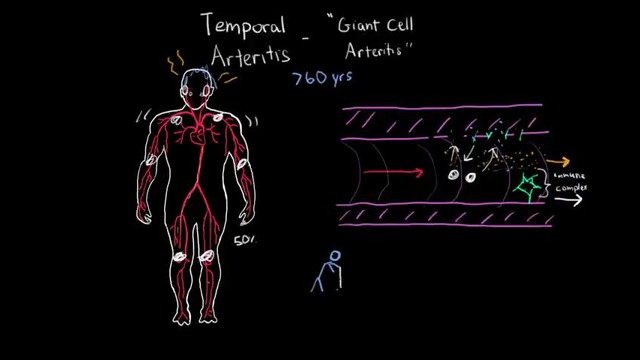 Temporal
Arteritis
- "Giant Cell
Arteritis"
>60 yrs
immune
complex
50%